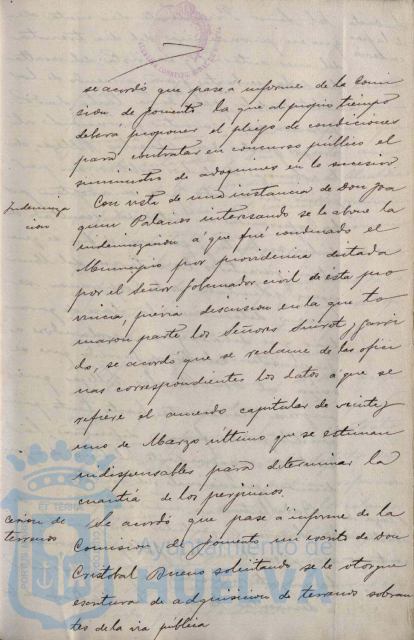 se acordó que pase á informe de la Comi
sion de fomento la que al propio tiempo
deberá proponer el pliego de condiciones
para contratar en concurso público el
suministro de adoquines en lo sucesivo
Indemniza
cion
Con vista de una instancia de Don Joa
quin Palacios interesando se le abone la
indemnizacion á que fué condenado el
Municipio por providencia dictada
por el Señor Gobernador civil de ésta pro
vincia, previa discusion en la que to
maron parte los Señores Siurot y Garri
do, se acordó que se reclame de las ofici
nas correspondientes los datos á que se
refiere el acuerdo capitular de veinte y
uno de Marzo ultimo que se estiman
indispensables para determinar la
cuantia de los perjuicios.
Cesion de
terrenos
Se acordó que pase á informe de la
Comision de fomento un escrito de Don
Cristobal Bueno solicitando se le otorgue
escritura de adquisicion de terrenos sobran
tes de la via pública
Ayuntamiento de
HUELVA